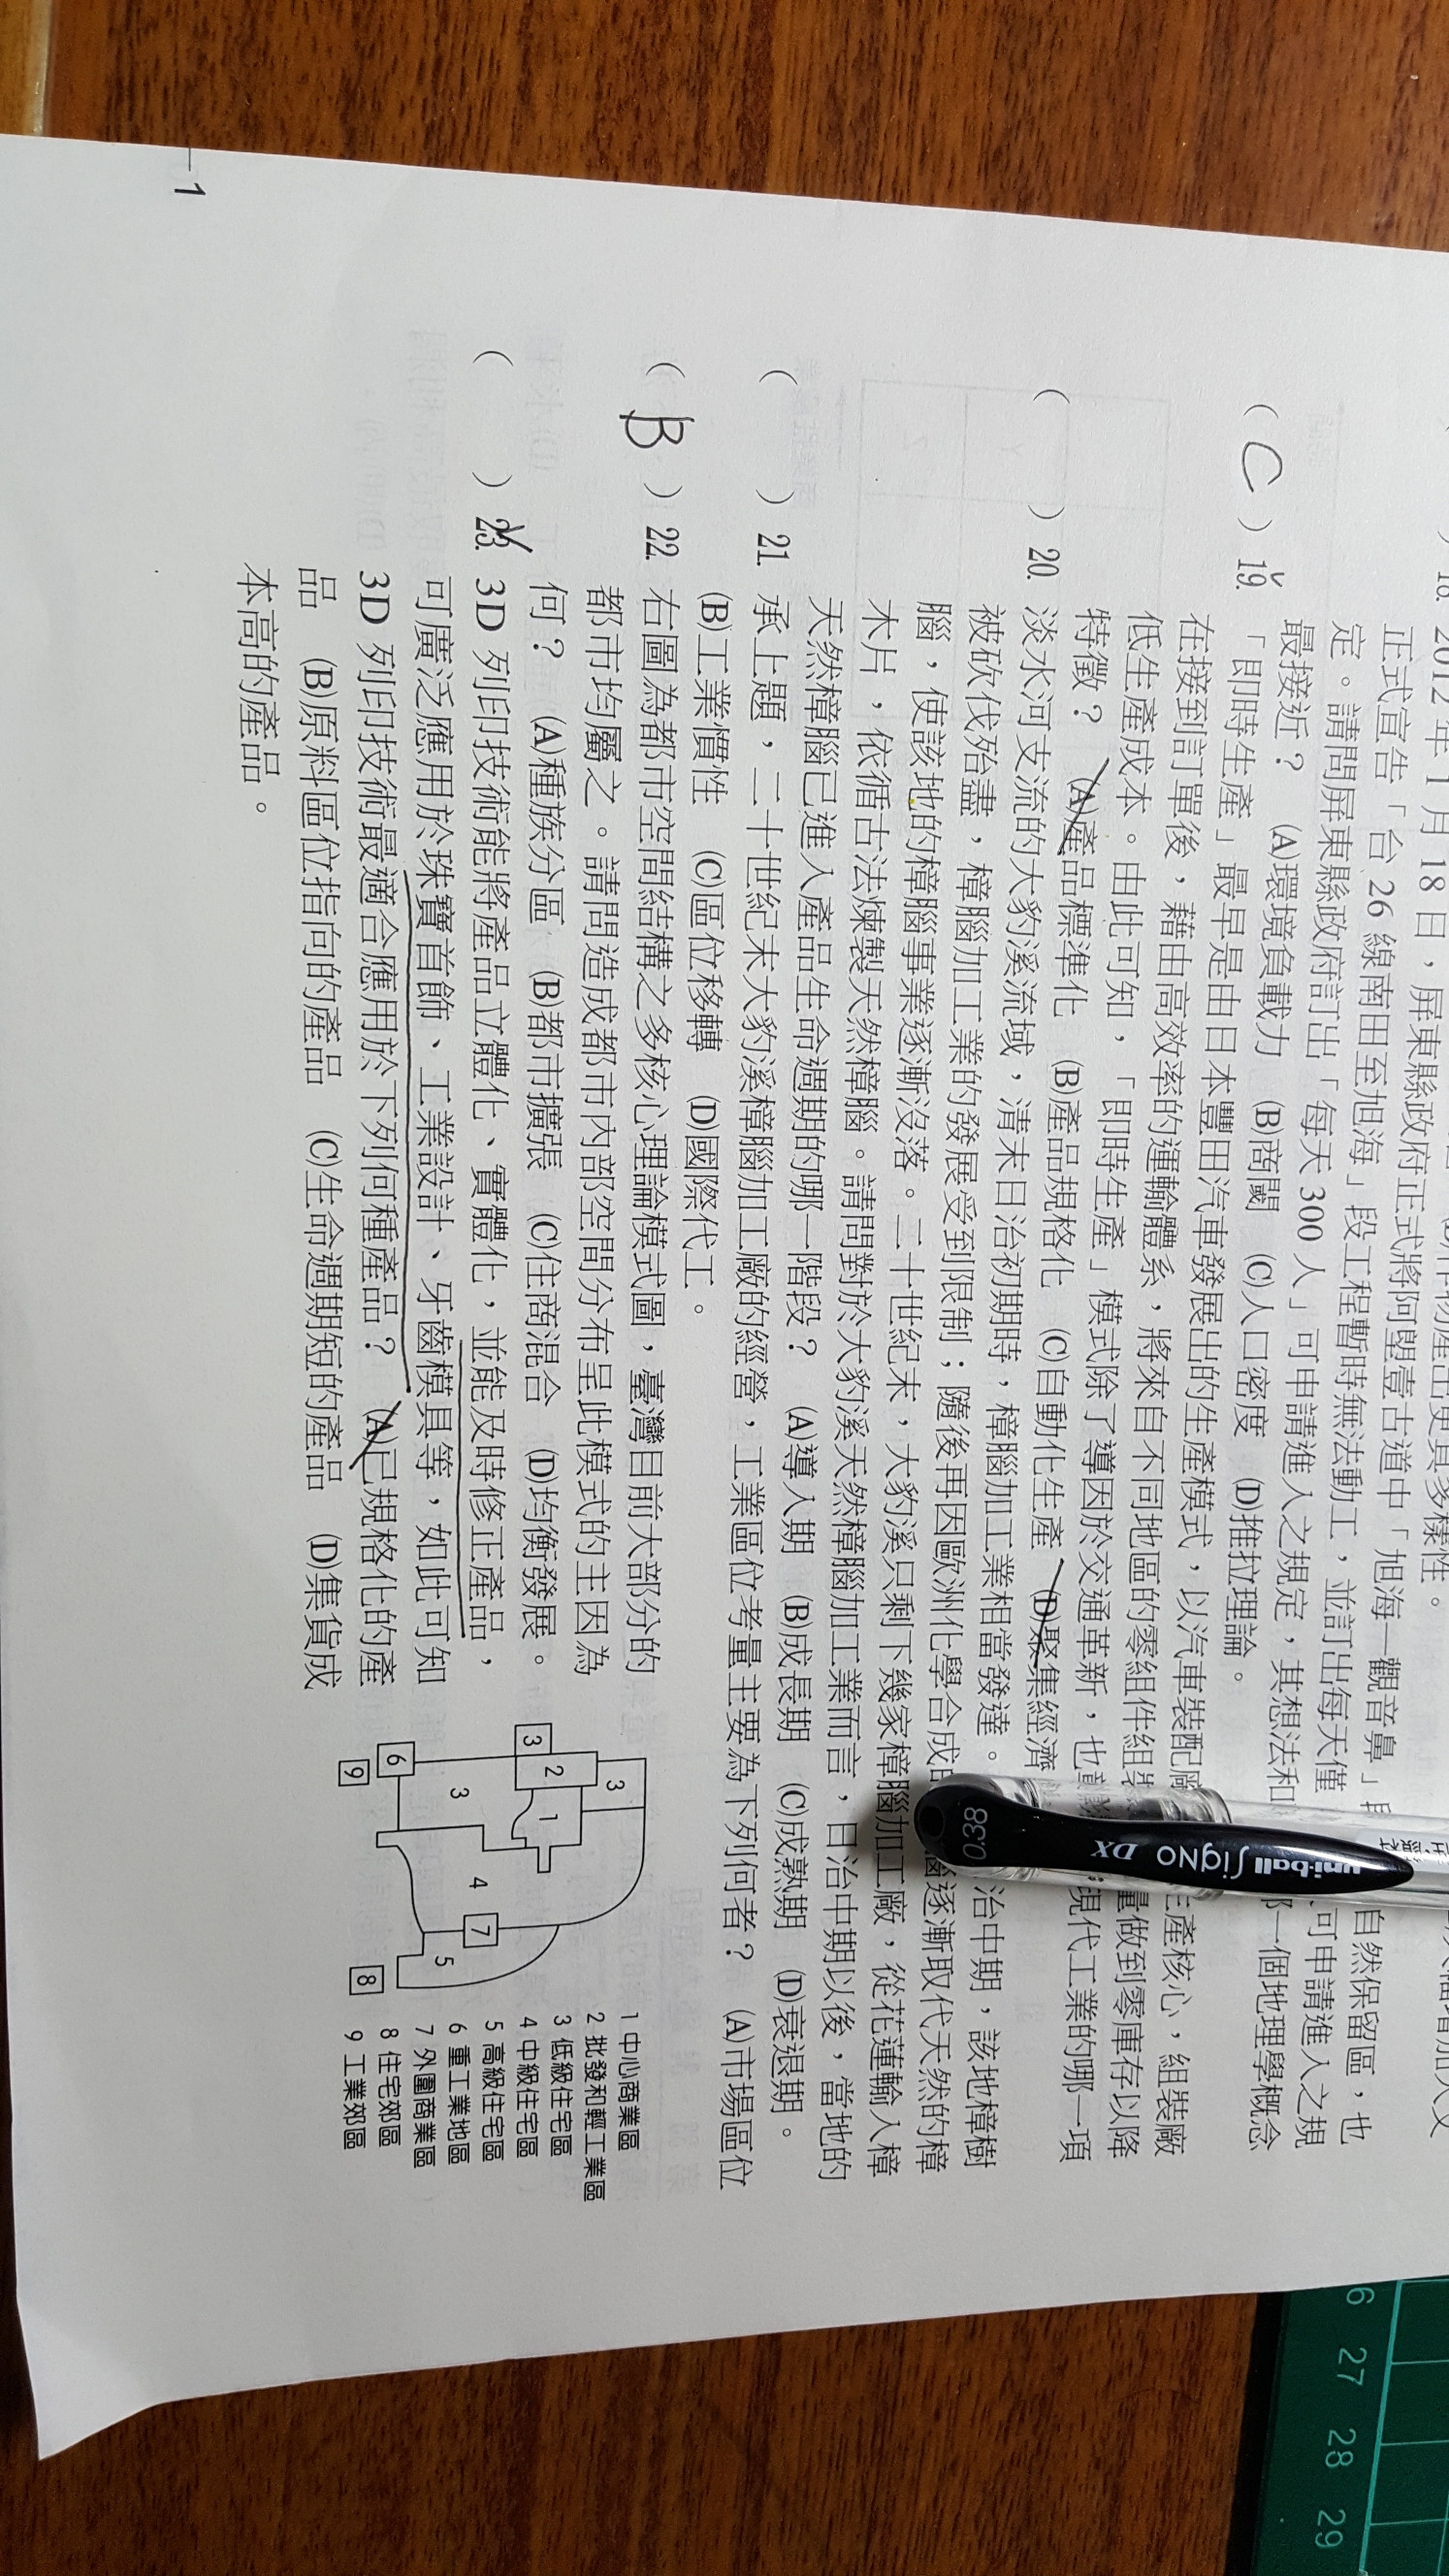 18. 2012 年 1 月 18 日，屏東縣政府正式將阿塱壹古道中「旭海—觀音鼻」 自然保留區，也
正式宣告「台 26 線南田至旭海」段工程暫時無法動工，並訂出每天僅 可申請進入之規
定。請問屏東縣政府訂出「每天 300 人」可申請進入之規定，其想法和 一個地理學概念
最接近？ (A)環境負載力 (B)商閾 (C)人口密度 (D)推拉理論。
( C ) 19. 「即時生產」最早是由日本豐田汽車發展出的生產模式，以汽車裝配廠 生產核心，組裝廠
在接到訂單後，藉由高效率的運輸體系，將來自不同地區的零組件組裝 量做到零庫存以降
低生產成本。由此可知，「即時生產」模式除了導因於交通革新，也 現代工業的哪一項
特徵？ (A)產品標準化 (B)產品規格化 (C)自動化生產 (D)聚集經濟
( ) 20. 淡水河支流的大豹溪流域，清末日治初期時，樟腦加工業相當發達。 治中期，該地樟樹
被砍伐殆盡，樟腦加工業的發展受到限制；隨後再因歐洲化學合成 腦逐漸取代天然的樟
腦，使該地的樟腦事業逐漸沒落。二十世紀末，大豹溪只剩下幾家樟腦加工廠，從花蓮輸入樟
木片，依循古法煉製天然樟腦。請問對於大豹溪天然樟腦加工業而言，日治中期以後，當地的
天然樟腦已進入產品生命週期的哪一階段？ (A)導入期 (B)成長期 (C)成熟期 (D)衰退期。
( ) 21. 承上題，二十世紀末大豹溪樟腦加工廠的經營，工業區位考量主要為下列何者？ (A)市場區位
(B)工業慣性 (C)區位移轉 (D)國際代工。
( B ) 22. 右圖為都市空間結構之多核心理論模式圖，臺灣目前大部分的
都市均屬之。請問造成都市內部空間分布呈此模式的主因為
何？ (A)種族分區 (B)都市擴張 (C)住商混合 (D)均衡發展。
( ) 23. 3D 列印技術能將產品立體化、實體化，並能及時修正產品，
可廣泛應用於珠寶首飾、工業設計、牙齒模具等，如此可知
3D 列印技術最適合應用於下列何種產品？ (A)已規格化的產
品 (B)原料區位指向的產品 (C)生命週期短的產品 (D)集貨成
本高的產品。
3
3
2
1
6
3
4
7
5
9
8
1 中心商業區
2 批發和輕工業區
3 低級住宅區
4 中級住宅區
5 高級住宅區
6 重工業地區
7 外圍商業區
8 住宅郊區
9 工業郊區
1
uni-ball Signo DX
0.38
6 27 28 29